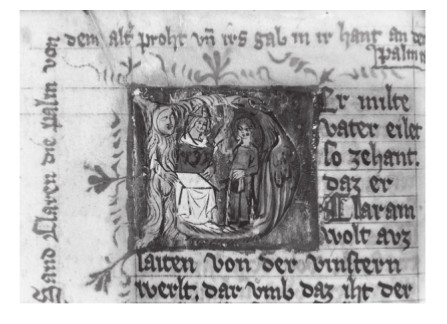 Sand Claren die palm von
dem alt' proht vñ irs gab in ir hant an de
Palm
DEr milte
vater eilet
so zehant.
daz er
Claram
wolt auz
laiten von der vinstern
werlt, dar vmb daz iht der